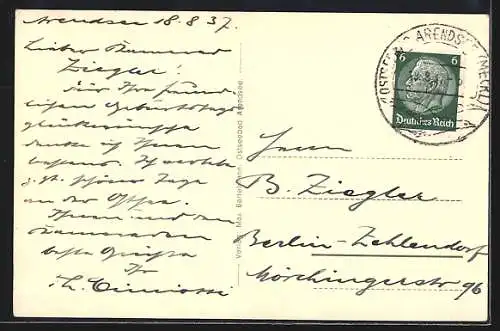 Arendsee 18.8.37.
Lieber Kamerad
Ziegler!
Für Ihre freund-
lichen Geburtstags
glückwünsche
danke ich Ihnen
bestens. Ich verlebe
z. Zt. schöne Tage
an der Ostsee.
Ihnen und den
Kameraden
beste Grüße
Ihr
Verlag: Max Ostseebad Arendsee
(OSTSEEBAD ARENDSEE (MECKL)
6 6
Deutsches Reich
Herrn
B. Ziegler
Berlin-Zehlendorf
Mörchingerstr 96